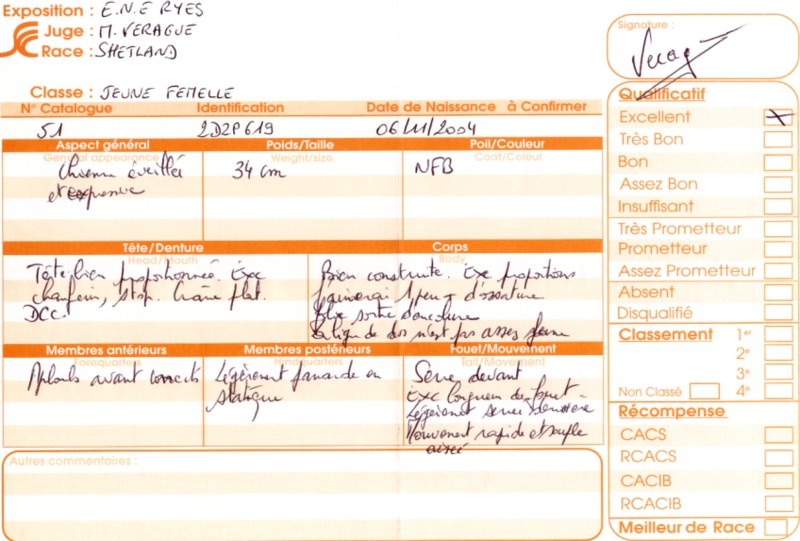 Exposition : E.N.E RYES
Juge : M. VERAGUE
Race : SHETLAND
Classe : JEUNE FEMELLE
N° Catalogue Identification Date de Naissance à Confirmer
51 2D2P619 06/11/2004
Aspect général Poids/Taille Poil/Couleur
General appearance Weight/size Coat/Colour
Chienne éveillée 34 cm NFB
et expressive
Tête/Denture Corps
Head/Mouth Body
Tête bien proportionnée. Exc
chanfrein, stop. Crâne plat.
DCC.
Bien construite. Exc proportions
J'aimerai 1 peu + d'ossature
sortie d'encolure
La ligne de dos n'est pas assez ferme
Membres antérieurs Membres postérieurs Fouet/Mouvement
Forequarters Hindquarters Tail/Movement
Aplombs avant corrects
Légèrement panarde en
statique
Serré devant
Exc longueur de fouet
Légèrement serré derrière
Mouvement rapide et souple
aisé
Autres commentaires :
Signature :
Verag
Qualificatif
Excellent X
Très Bon
Bon
Assez Bon
Insuffisant
Très Prometteur
Prometteur
Assez Prometteur
Absent
Disqualifié
Classement 1er
2e
3e
Non Classé 4e
Récompense
CACS
RCACS
CACIB
RCACIB
Meilleur de Race